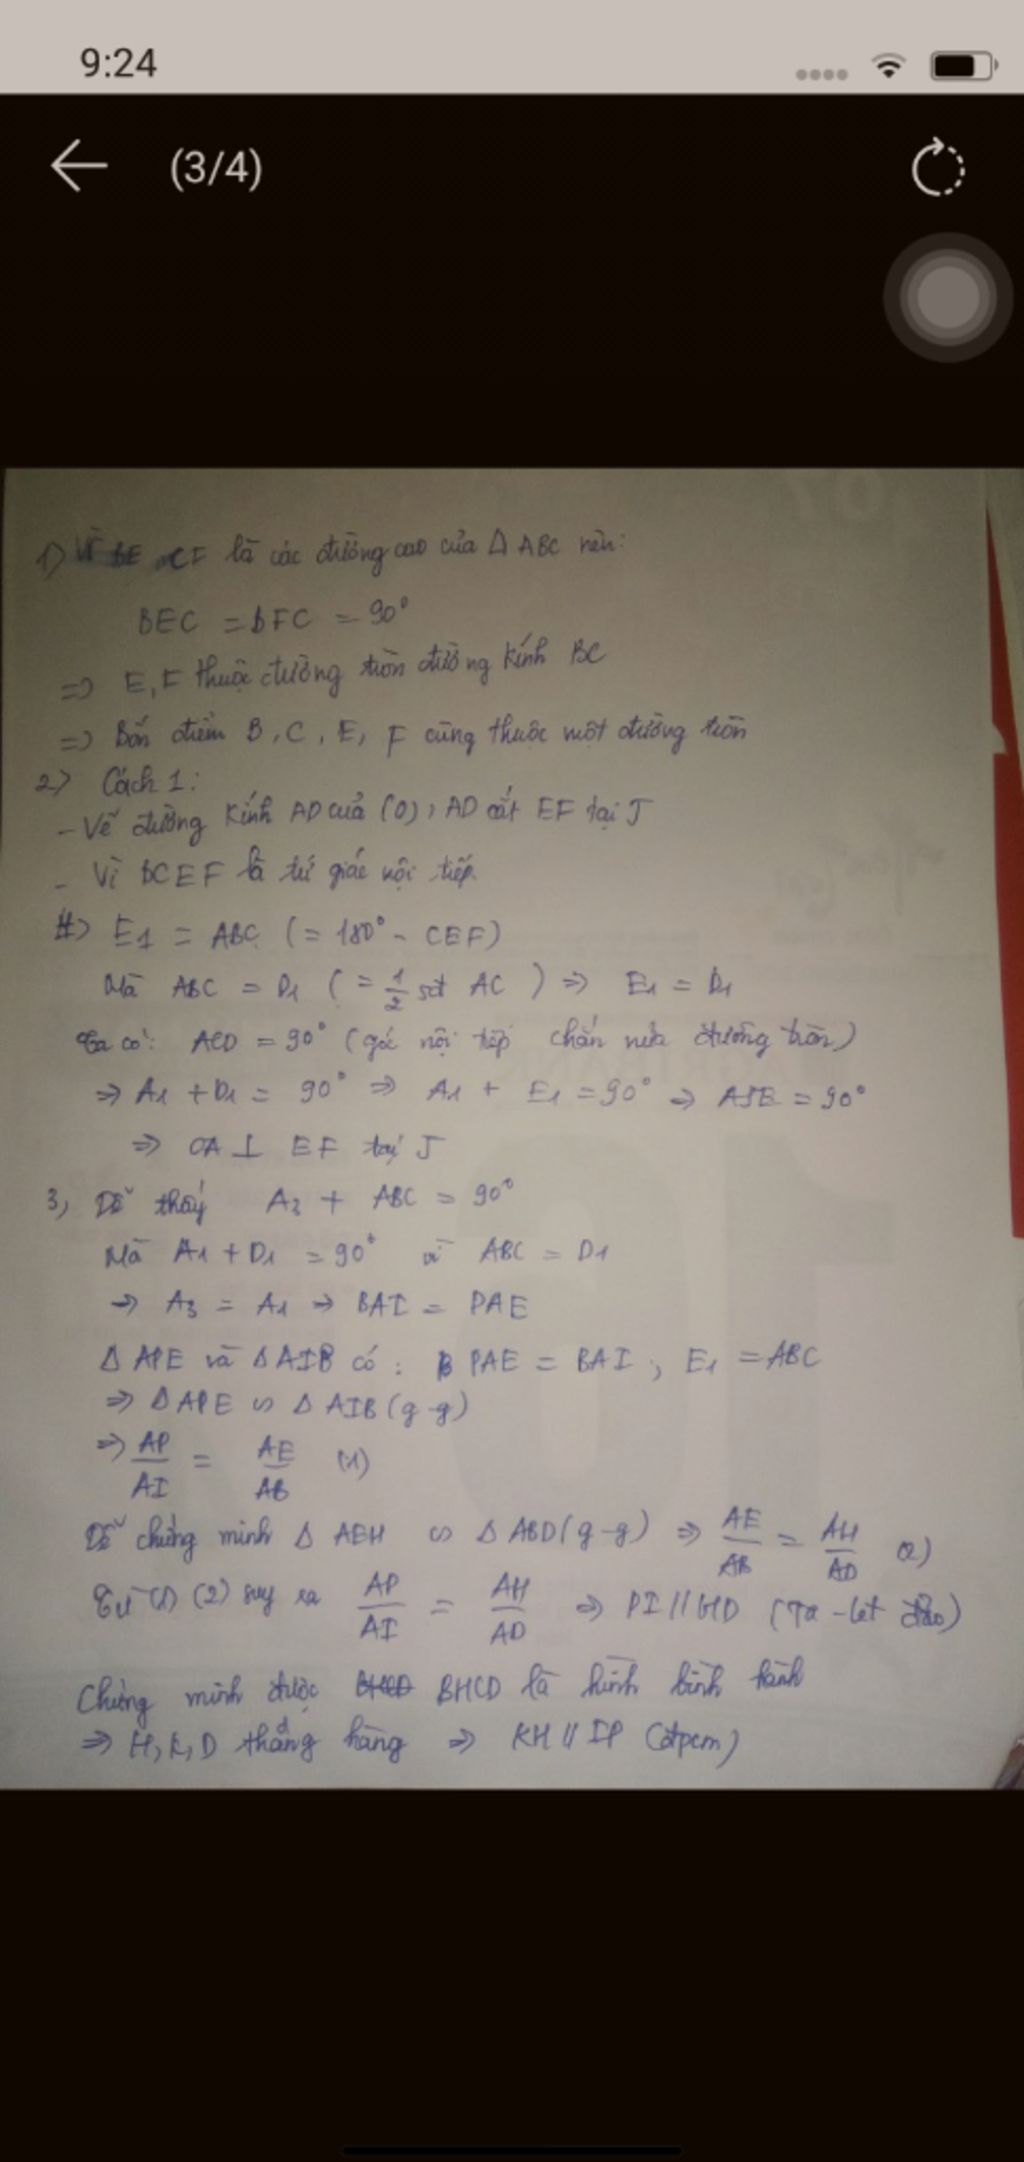 9:24
(3/4)
1) Vì BE, CF là các đường cao của Δ ABC nên:
BEC = BFC = 90°
=> E, F thuộc đường tròn đường kính BC
=> Bốn điểm B, C, E, F cùng thuộc một đường tròn
2) Cách 1:
- Vẽ đường kính AD của (O), AD cắt EF tại J
- Vì BCEF là tứ giác nội tiếp
=> E1 = ABC (= 180° - CEF)
Mà ABC = D1 (= 1/2 sđ AC) => E1 = D1
Ta có: ACD = 90° (góc nội tiếp chắn nửa đường tròn)
=> A1 + D1 = 90° => A1 + E1 = 90° => AJE = 90°
=> OA ⊥ EF tại J
3, Dễ thấy A3 + ABC = 90°
Mà A1 + D1 = 90° vì ABC = D1
=> A3 = A1 => BAI = PAE
Δ APE và Δ AIB có: PAE = BAI, E1 = ABC
=> Δ APE ∽ Δ AIB (g-g)
=> AP/AI = AE/AB (1)
Dễ chứng minh Δ AEH ∽ Δ ABD (g-g) => AE/AB = AH/AD (2)
Từ (1) (2) suy ra AP/AI = AH/AD => PI // HD (Ta-let đảo)
Chứng minh được BHCD là hình bình hành
=> H, K, D thẳng hàng => KH // IP (đpcm)